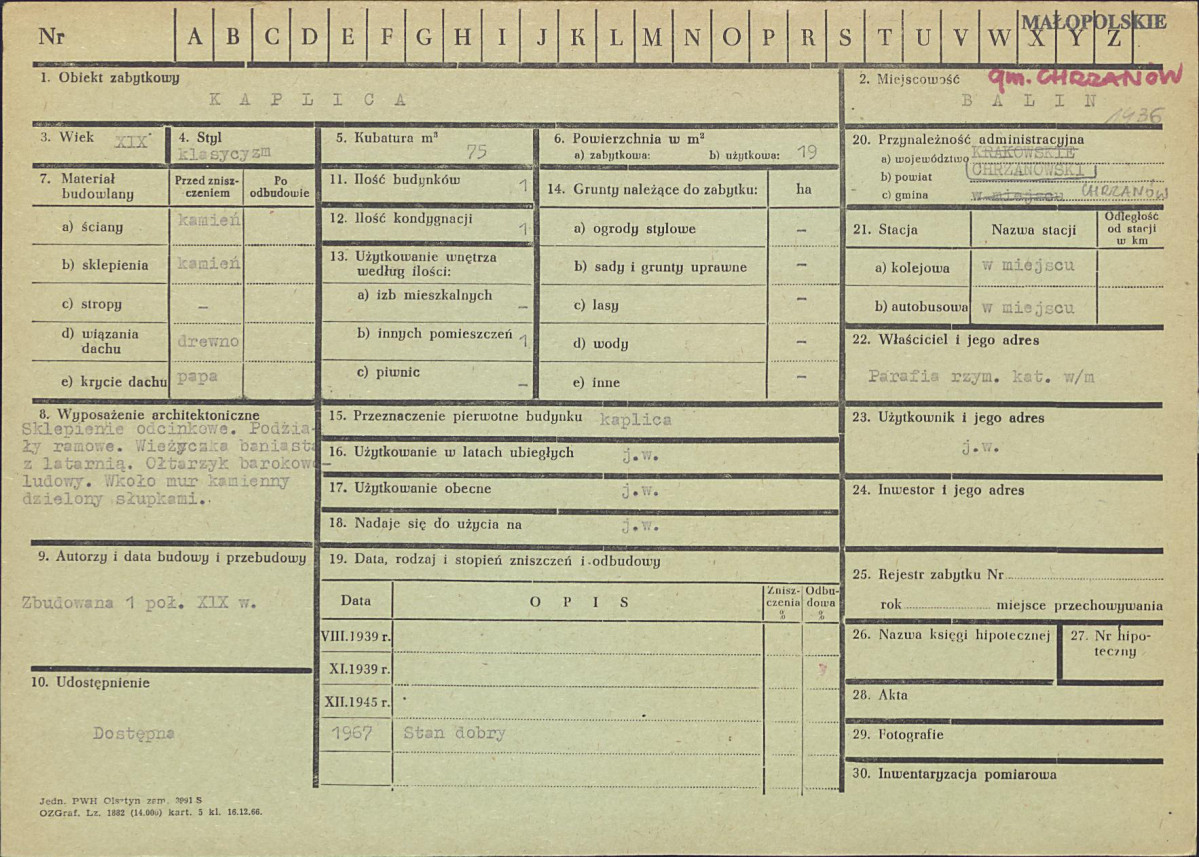 Nr A B C D E F G H I J K L M N O P R S T U V W X Y Z
MAŁOPOLSKIE
1. Obiekt zabytkowy
KAPLICA
2. Miejscowość gm. CHRZANÓW
BALIN
1436
3. Wiek XIX
4. Styl
klasycyzm
5. Kubatura m³
75
6. Powierzchnia w m²
a) zabytkowa: b) użytkowa: 19
7. Materiał budowlany
Przed zniszczeniem
Po odbudowie
a) ściany kamień
b) sklepienia kamień
c) stropy –
d) wiązania dachu drewno
e) krycie dachu papa
8. Wyposażenie architektoniczne
Sklepienie odcinkowe. Podzia-
ły ramowe. Wieżyczka baniasta
z latarnią. Ołtarzyk barokowo-
ludowy. Wkoło mur kamienny
dzielony słupkami.
9. Autorzy i data budowy i przebudowy
Zbudowana 1 poł. XIX w.
10. Udostępnienie
Dostępna
11. Ilość budynków 1
12. Ilość kondygnacji 1
13. Użytkowanie wnętrza
według ilości:
a) izb mieszkalnych –
b) innych pomieszczeń 1
c) piwnic –
14. Grunty należące do zabytku: ha
a) ogrody stylowe –
b) sady i grunty uprawne –
c) lasy –
d) wody –
e) inne –
15. Przeznaczenie pierwotne budynku kaplica
16. Użytkowanie w latach ubiegłych j.w.
17. Użytkowanie obecne j.w.
18. Nadaje się do użycia na j.w.
19. Data, rodzaj i stopień zniszczeń i odbudowy
Data OPIS Znisz-
czenia
%
Odbu-
dowa
%
VIII.1939 r.
XI.1939 r.
XII.1945 r.
1967 Stan dobry
20. Przynależność administracyjna
a) województwo KRAKOWSKIE
b) powiat CHRZANOWSKI
c) gmina w miejscu CHRZANÓW
21. Stacja Nazwa stacji Odległość
od stacji
w km
a) kolejowa w miejscu
b) autobusowa w miejscu
22. Właściciel i jego adres
Parafia rzym. kat. w/m
23. Użytkownik i jego adres
j.w.
24. Inwestor i jego adres
25. Rejestr zabytku Nr
rok miejsce przechowywania
26. Nazwa księgi hipotecznej
27. Nr hipo-
teczny
28. Akta
29. Fotografie
30. Inwentaryzacja pomiarowa
Jedn. PWH Olsztyn zam. 2991 S
OZGraf. Lz. 1882 (14.000) kart. 5 kl. 16.12.66.